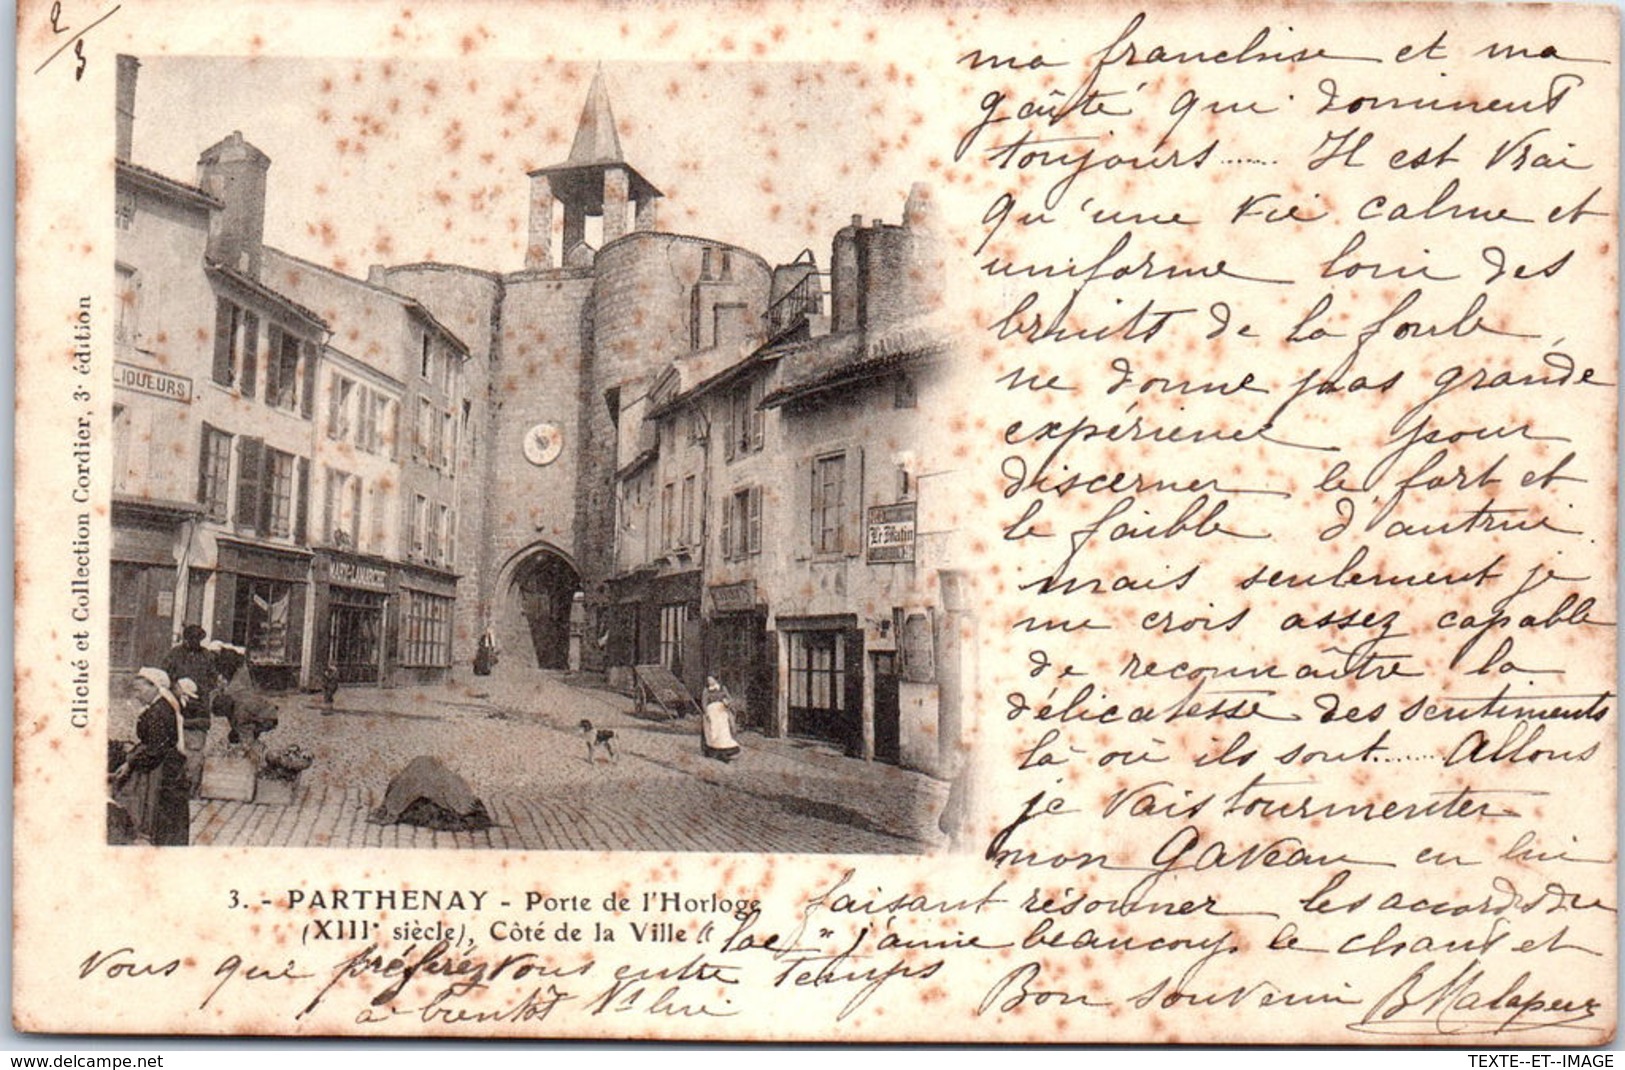 2/3
ma franchise et ma
gaîté qui dominent
toujours....... Il est Vrai
qu'une vie calme et
uniforme loin des
bruits de la foule,
ne donne pas grande
expérience pour
discerner le fort et
le faible d'autrui.
mais seulement je
me crois assez capable
de reconnaître la
délicatesse des sentiments
là où ils sont........ Allons
je vais tourmenter
mon Gaveau en lui
faisant résonner les accords du
"lac" j'aime beaucoup le chant et
Vous que préférez vous entre temps
à bientôt
Bon souvenir
Cliché et Collection Cordier, 3e édition
LIQUEURS
Le Matin
3. - PARTHENAY - Porte de l'Horloge
(XIIIe siècle), Côté de la Ville
delcampe.net
TEXTE--ET--IMAGE